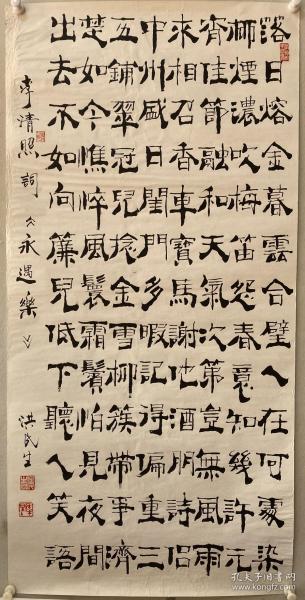 落日熔金暮雲合璧人在何處染
柳煙濃吹梅笛怨春意知幾許元
宵佳節融和天氣次第豈無風雨
來相召香車寶馬謝他酒朋詩侶
中州盛日閨門多暇記得偏重三
五鋪翠冠兒捻金雪柳簇帶爭濟
楚如今憔悴風鬟霜鬢怕見夜間
出去不如向簾兒低下聽人笑語
李清照詞 永遇樂 洪民生
孔夫子旧书网